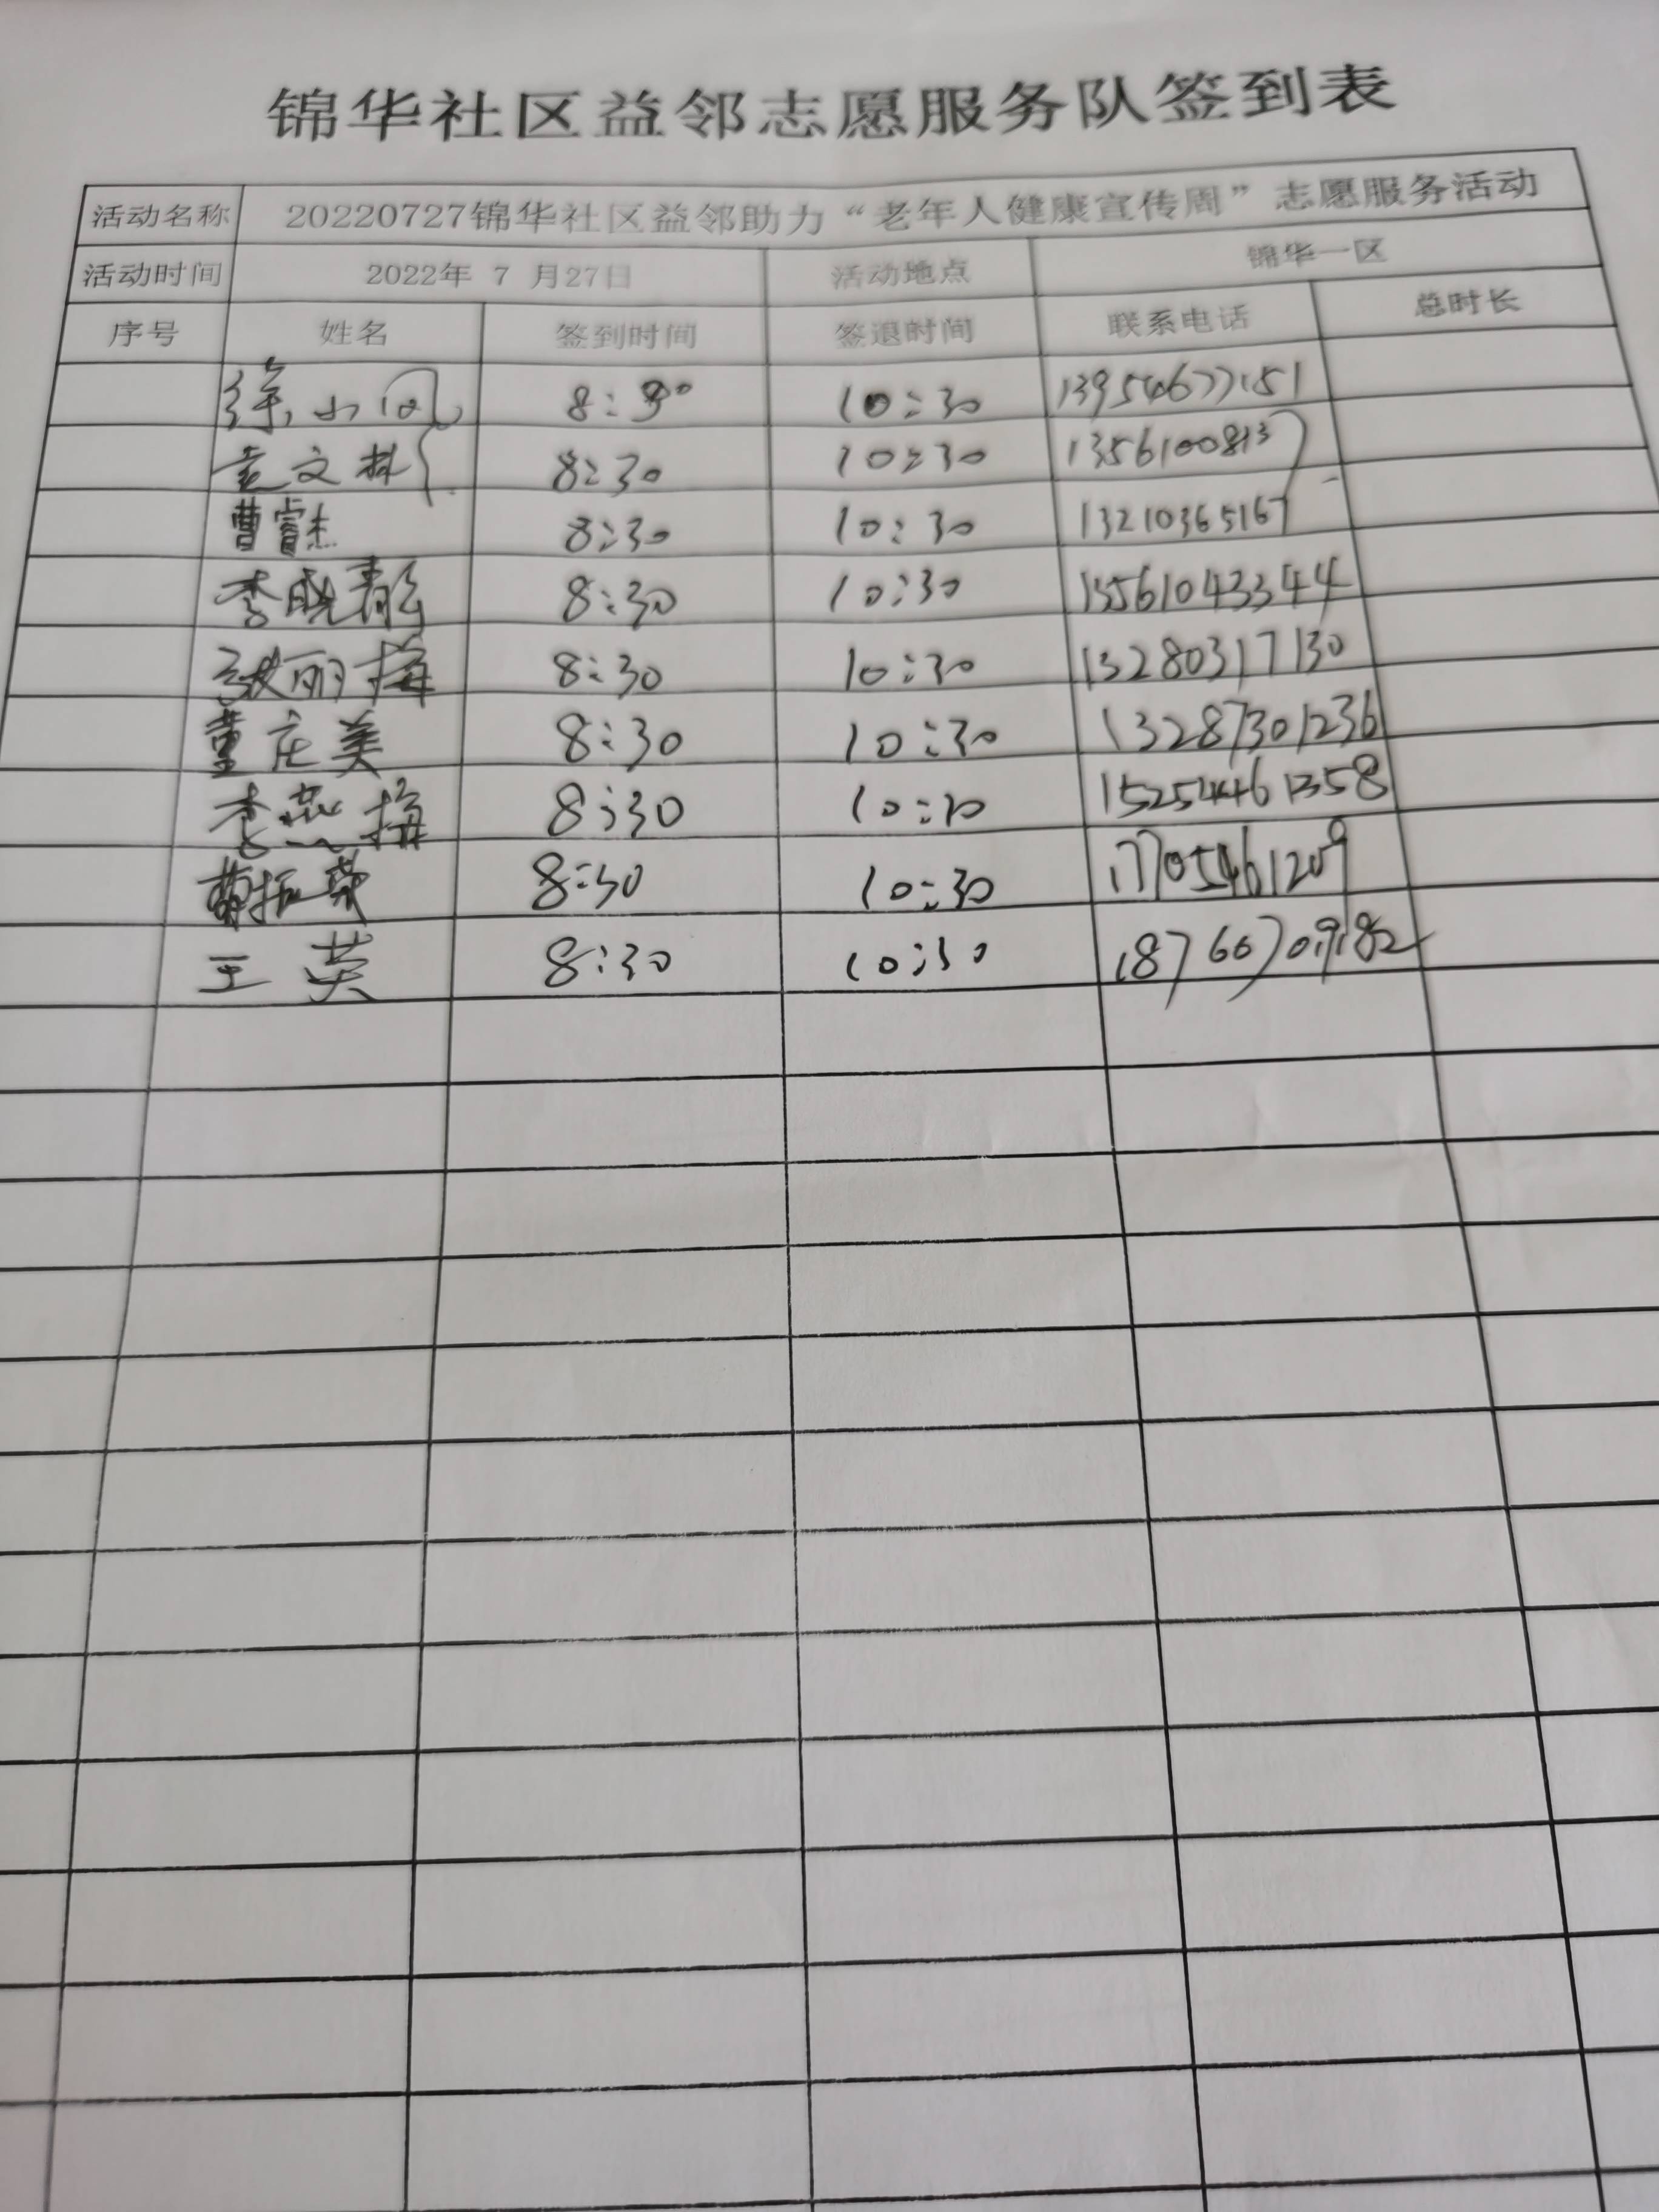 锦华社区益邻志愿服务队签到表
活动名称 20220727锦华社区益邻助力“老年人健康宣传周”志愿服务活动
活动时间 2022年 7 月27日 活动地点 锦华一区
序号 姓名 签到时间 签退时间 联系电话 总时长
徐小风 8:30 10:30 13954677151
袁文林 8:30 10:30 1356100813
曹睿杰 8:30 10:30 13210365167
李晓静 8:30 10:30 15561043344
张丽梅 8:30 10:30 13280317130
董庄美 8:30 10:30 13287301236
李燕梅 8:30 10:30 15254461358
曹振荣 8:30 10:30 17705461209
王英 8:30 10:30 18766709182